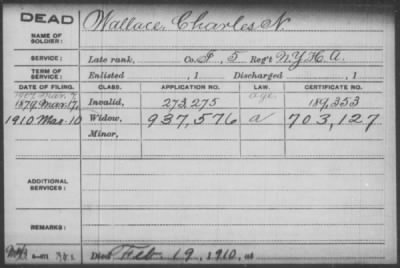 DEAD
Wallace, Charles N.
NAME OF SOLDIER:
SERVICE:
Late rank, Co. F, 5 Reg't N.Y.H.A.
TERM OF SERVICE:
Enlisted , 1 Discharged , 1
DATE OF FILING. CLASS. APPLICATION NO. LAW. CERTIFICATE NO.
1907 Mar. age
1879 Mar. 17, Invalid, 273,275 189,353
1910 Mar. 10 Widow, 937,576 a 703,127
Minor,
ADDITIONAL SERVICES:
REMARKS:
Died Feb 19, 1910, at